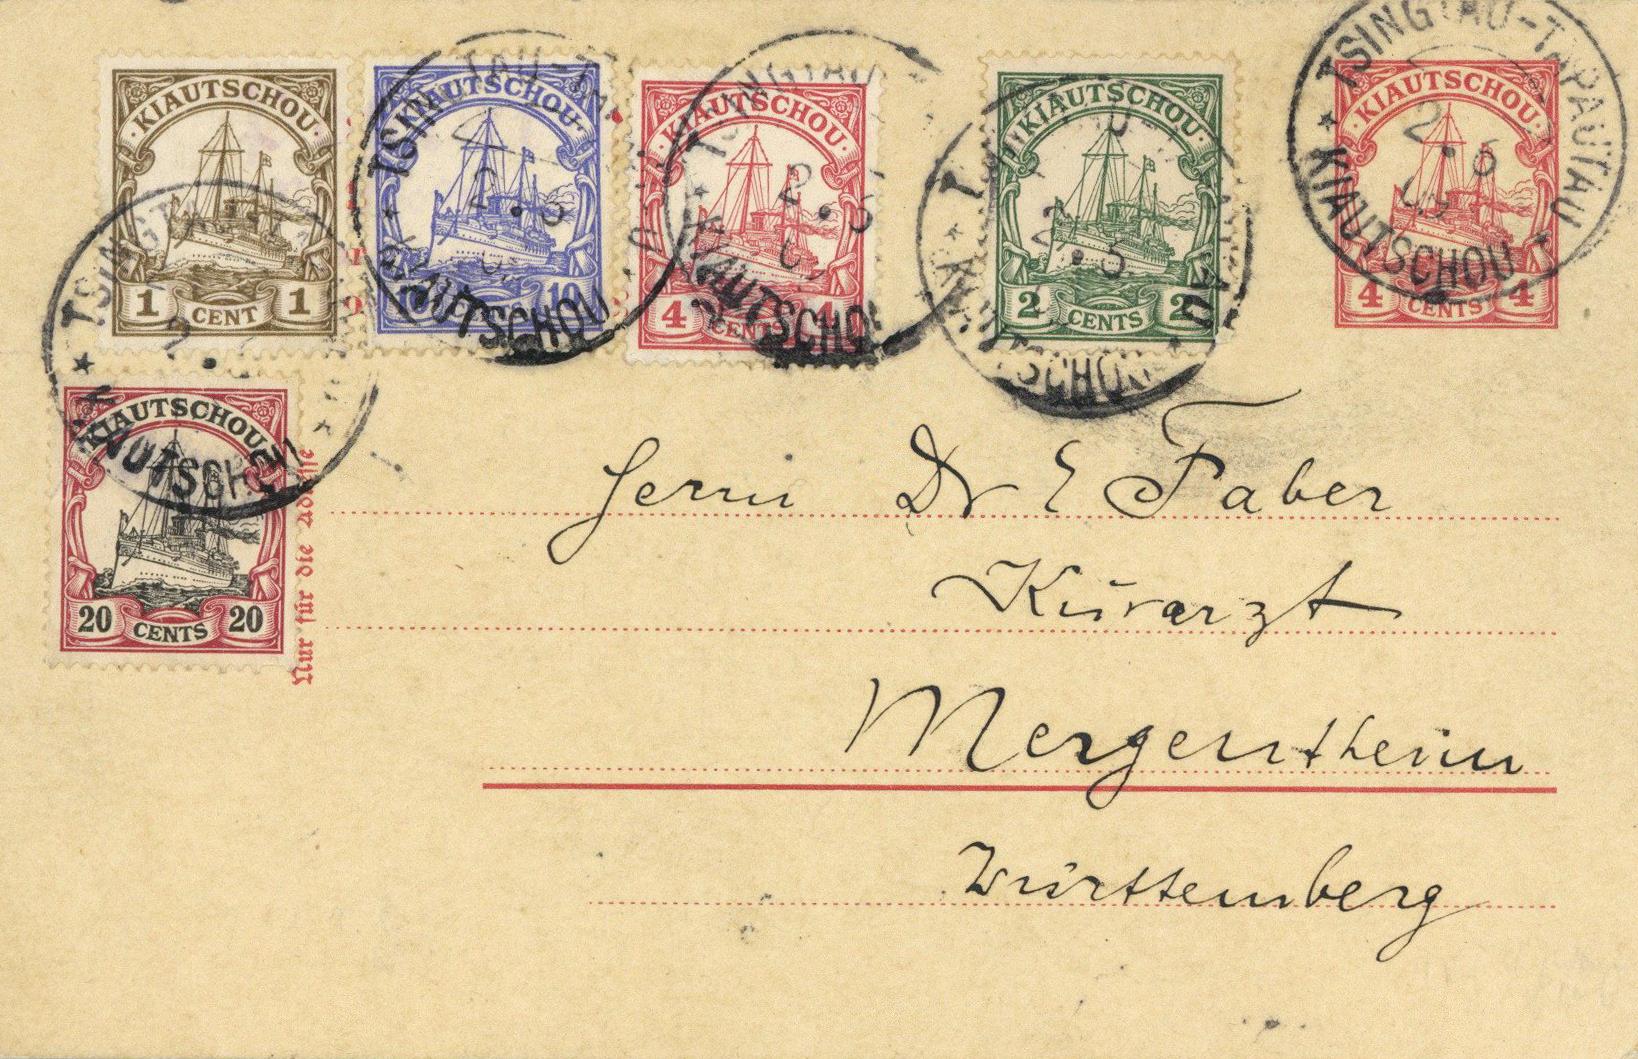 KIAUTSCHOU
1 CENT 1
KIAUTSCHOU
10 10
KIAUTSCHOU
4 CENTS
KIAUTSCHOU
2 CENTS 2
KIAUTSCHOU
4 CENTS 4
TSINGTAU-TAPAUTAU
2.5
KIAUTSCHOU
TSINGTAU
KIAUTSCHOU
TSINGTAU
2.5
KIAUTSCHOU
2.5
KIAUTSCHOU
TSINGTAU
2.
KIAUTSCHOU
KIAUTSCHOU
20 CENTS 20
Nur für die Adresse
Herrn Dr E Faber
Kurarzt
Mergentheim
Württemberg